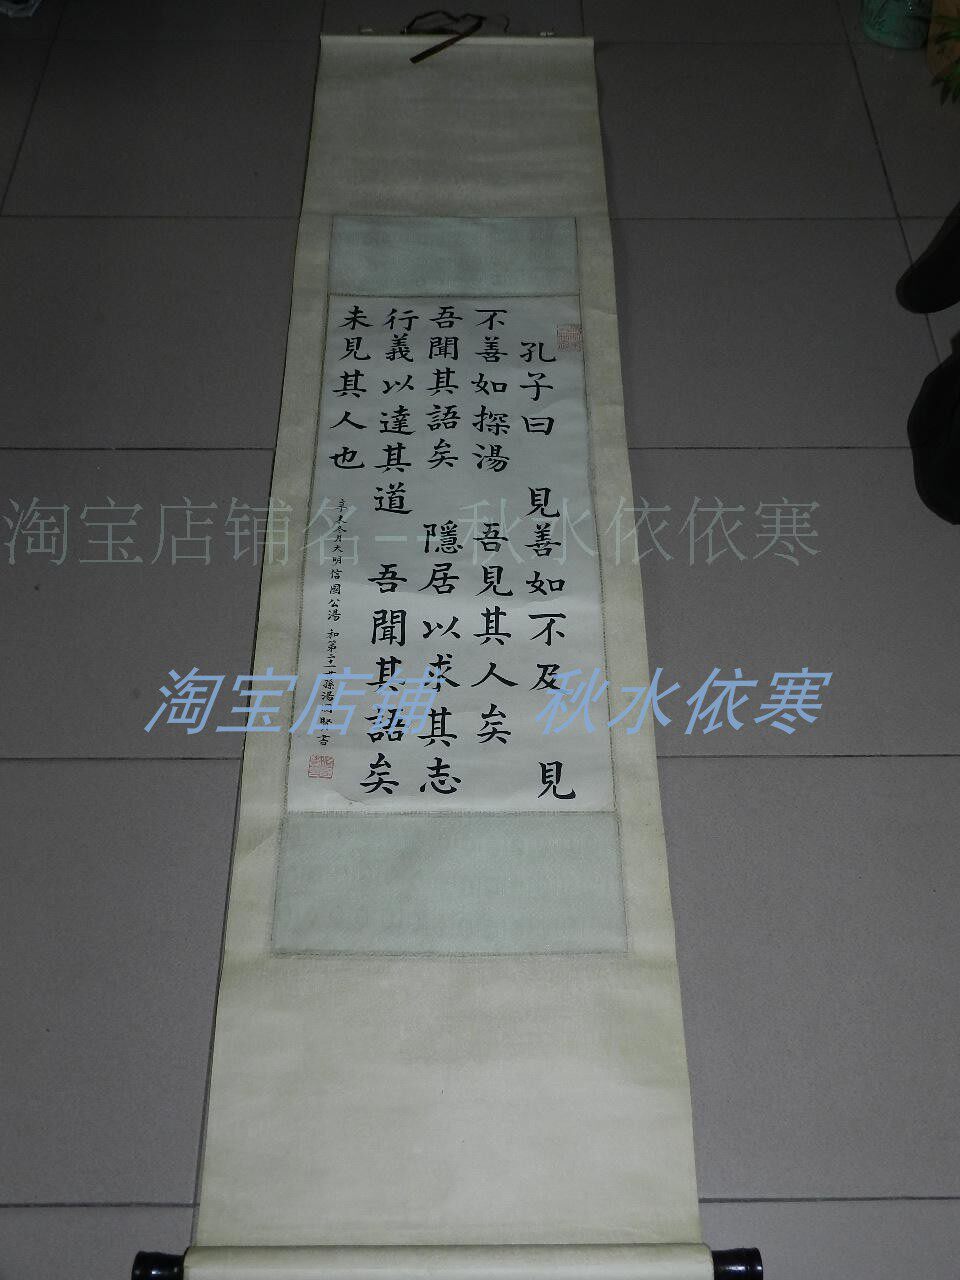 孔子曰 見善如不及 見
不善如探湯 吾見其人矣
吾聞其語矣 隱居以求其志
行義以達其道 吾聞其語矣
未見其人也
辛未冬月大明信國公湯 和第二十 孫湯 書
淘宝店铺名--秋水依依寒
淘宝店铺 秋水依寒